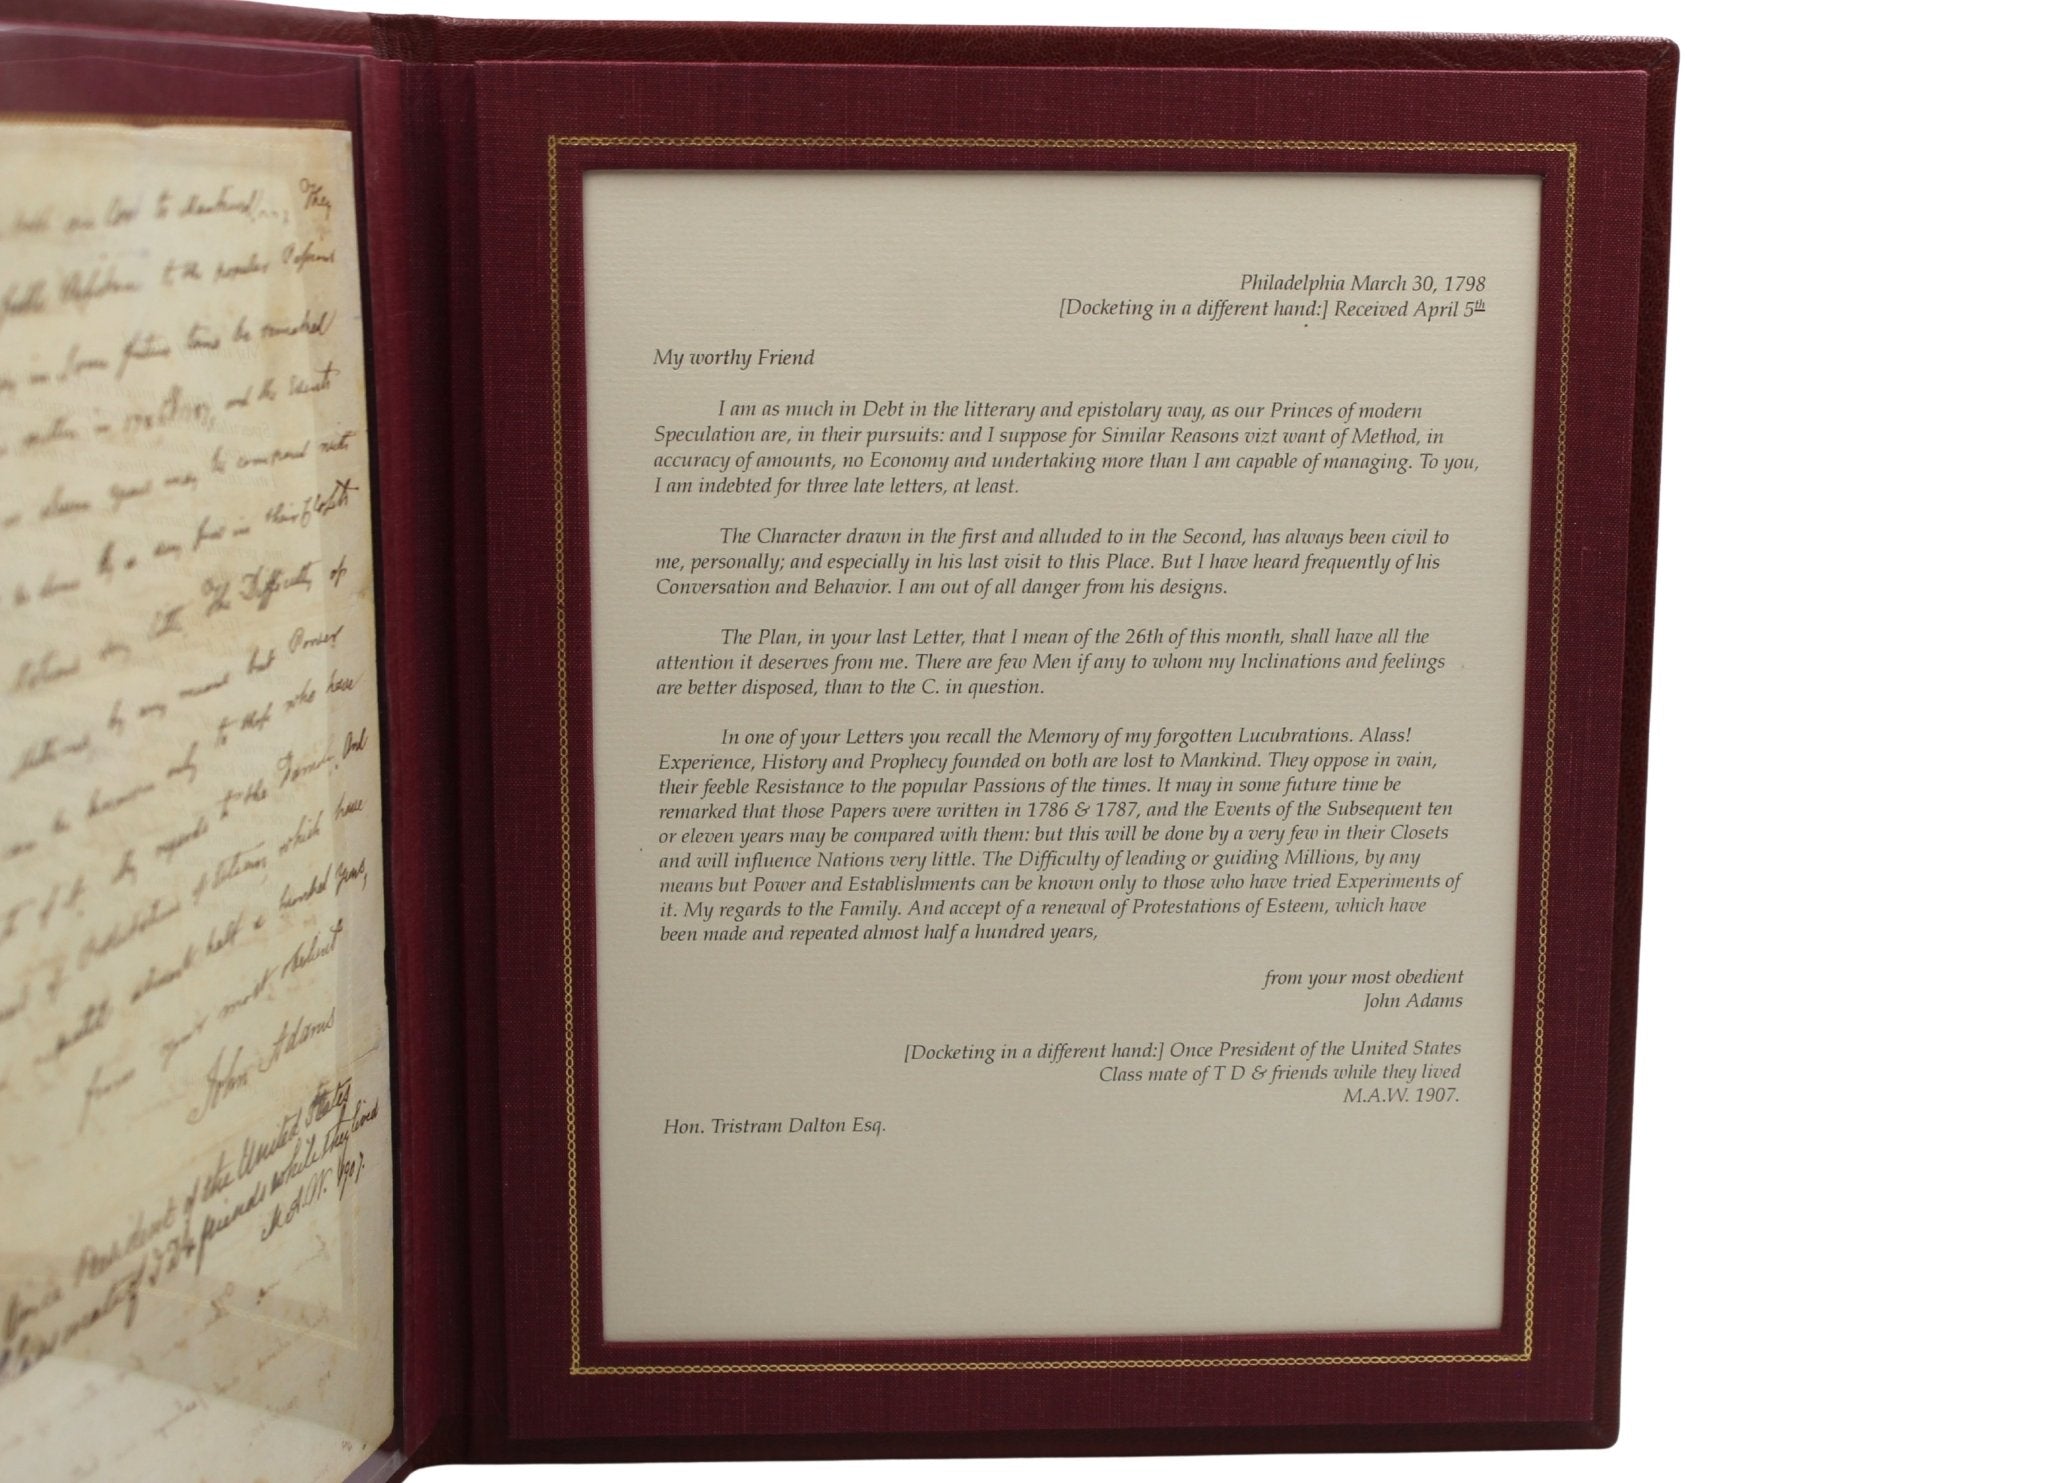 They
to the popular Passions
in Some future time be remarked
written in 1786 & 1787, and the Events
eleven years may be compared with
be done by a very few in their Closets
Nations very little. The Difficulty of
by any means but Power
be known only to those who have
of it. My regards to the Family. And
of Protestations of Esteem, which have
repeated almost half a hundred years,
from your most obedient
John Adams
Once President of the United States
Class mate of T D & friends while they lived
M.A.W. 1907.
Philadelphia March 30, 1798
[Docketing in a different hand:] Received April 5th
My worthy Friend
I am as much in Debt in the litterary and epistolary way, as our Princes of modern
Speculation are, in their pursuits: and I suppose for Similar Reasons vizt want of Method, in
accuracy of amounts, no Economy and undertaking more than I am capable of managing. To you,
I am indebted for three late letters, at least.
The Character drawn in the first and alluded to in the Second, has always been civil to
me, personally; and especially in his last visit to this Place. But I have heard frequently of his
Conversation and Behavior. I am out of all danger from his designs.
The Plan, in your last Letter, that I mean of the 26th of this month, shall have all the
attention it deserves from me. There are few Men if any to whom my Inclinations and feelings
are better disposed, than to the C. in question.
In one of your Letters you recall the Memory of my forgotten Lucubrations. Alass!
Experience, History and Prophecy founded on both are lost to Mankind. They oppose in vain,
their feeble Resistance to the popular Passions of the times. It may in some future time be
remarked that those Papers were written in 1786 & 1787, and the Events of the Subsequent ten
or eleven years may be compared with them: but this will be done by a very few in their Closets
and will influence Nations very little. The Difficulty of leading or guiding Millions, by any
means but Power and Establishments can be known only to those who have tried Experiments of
it. My regards to the Family. And accept of a renewal of Protestations of Esteem, which have
been made and repeated almost half a hundred years,
from your most obedient
John Adams
[Docketing in a different hand:] Once President of the United States
Class mate of T D & friends while they lived
M.A.W. 1907.
Hon. Tristram Dalton Esq.